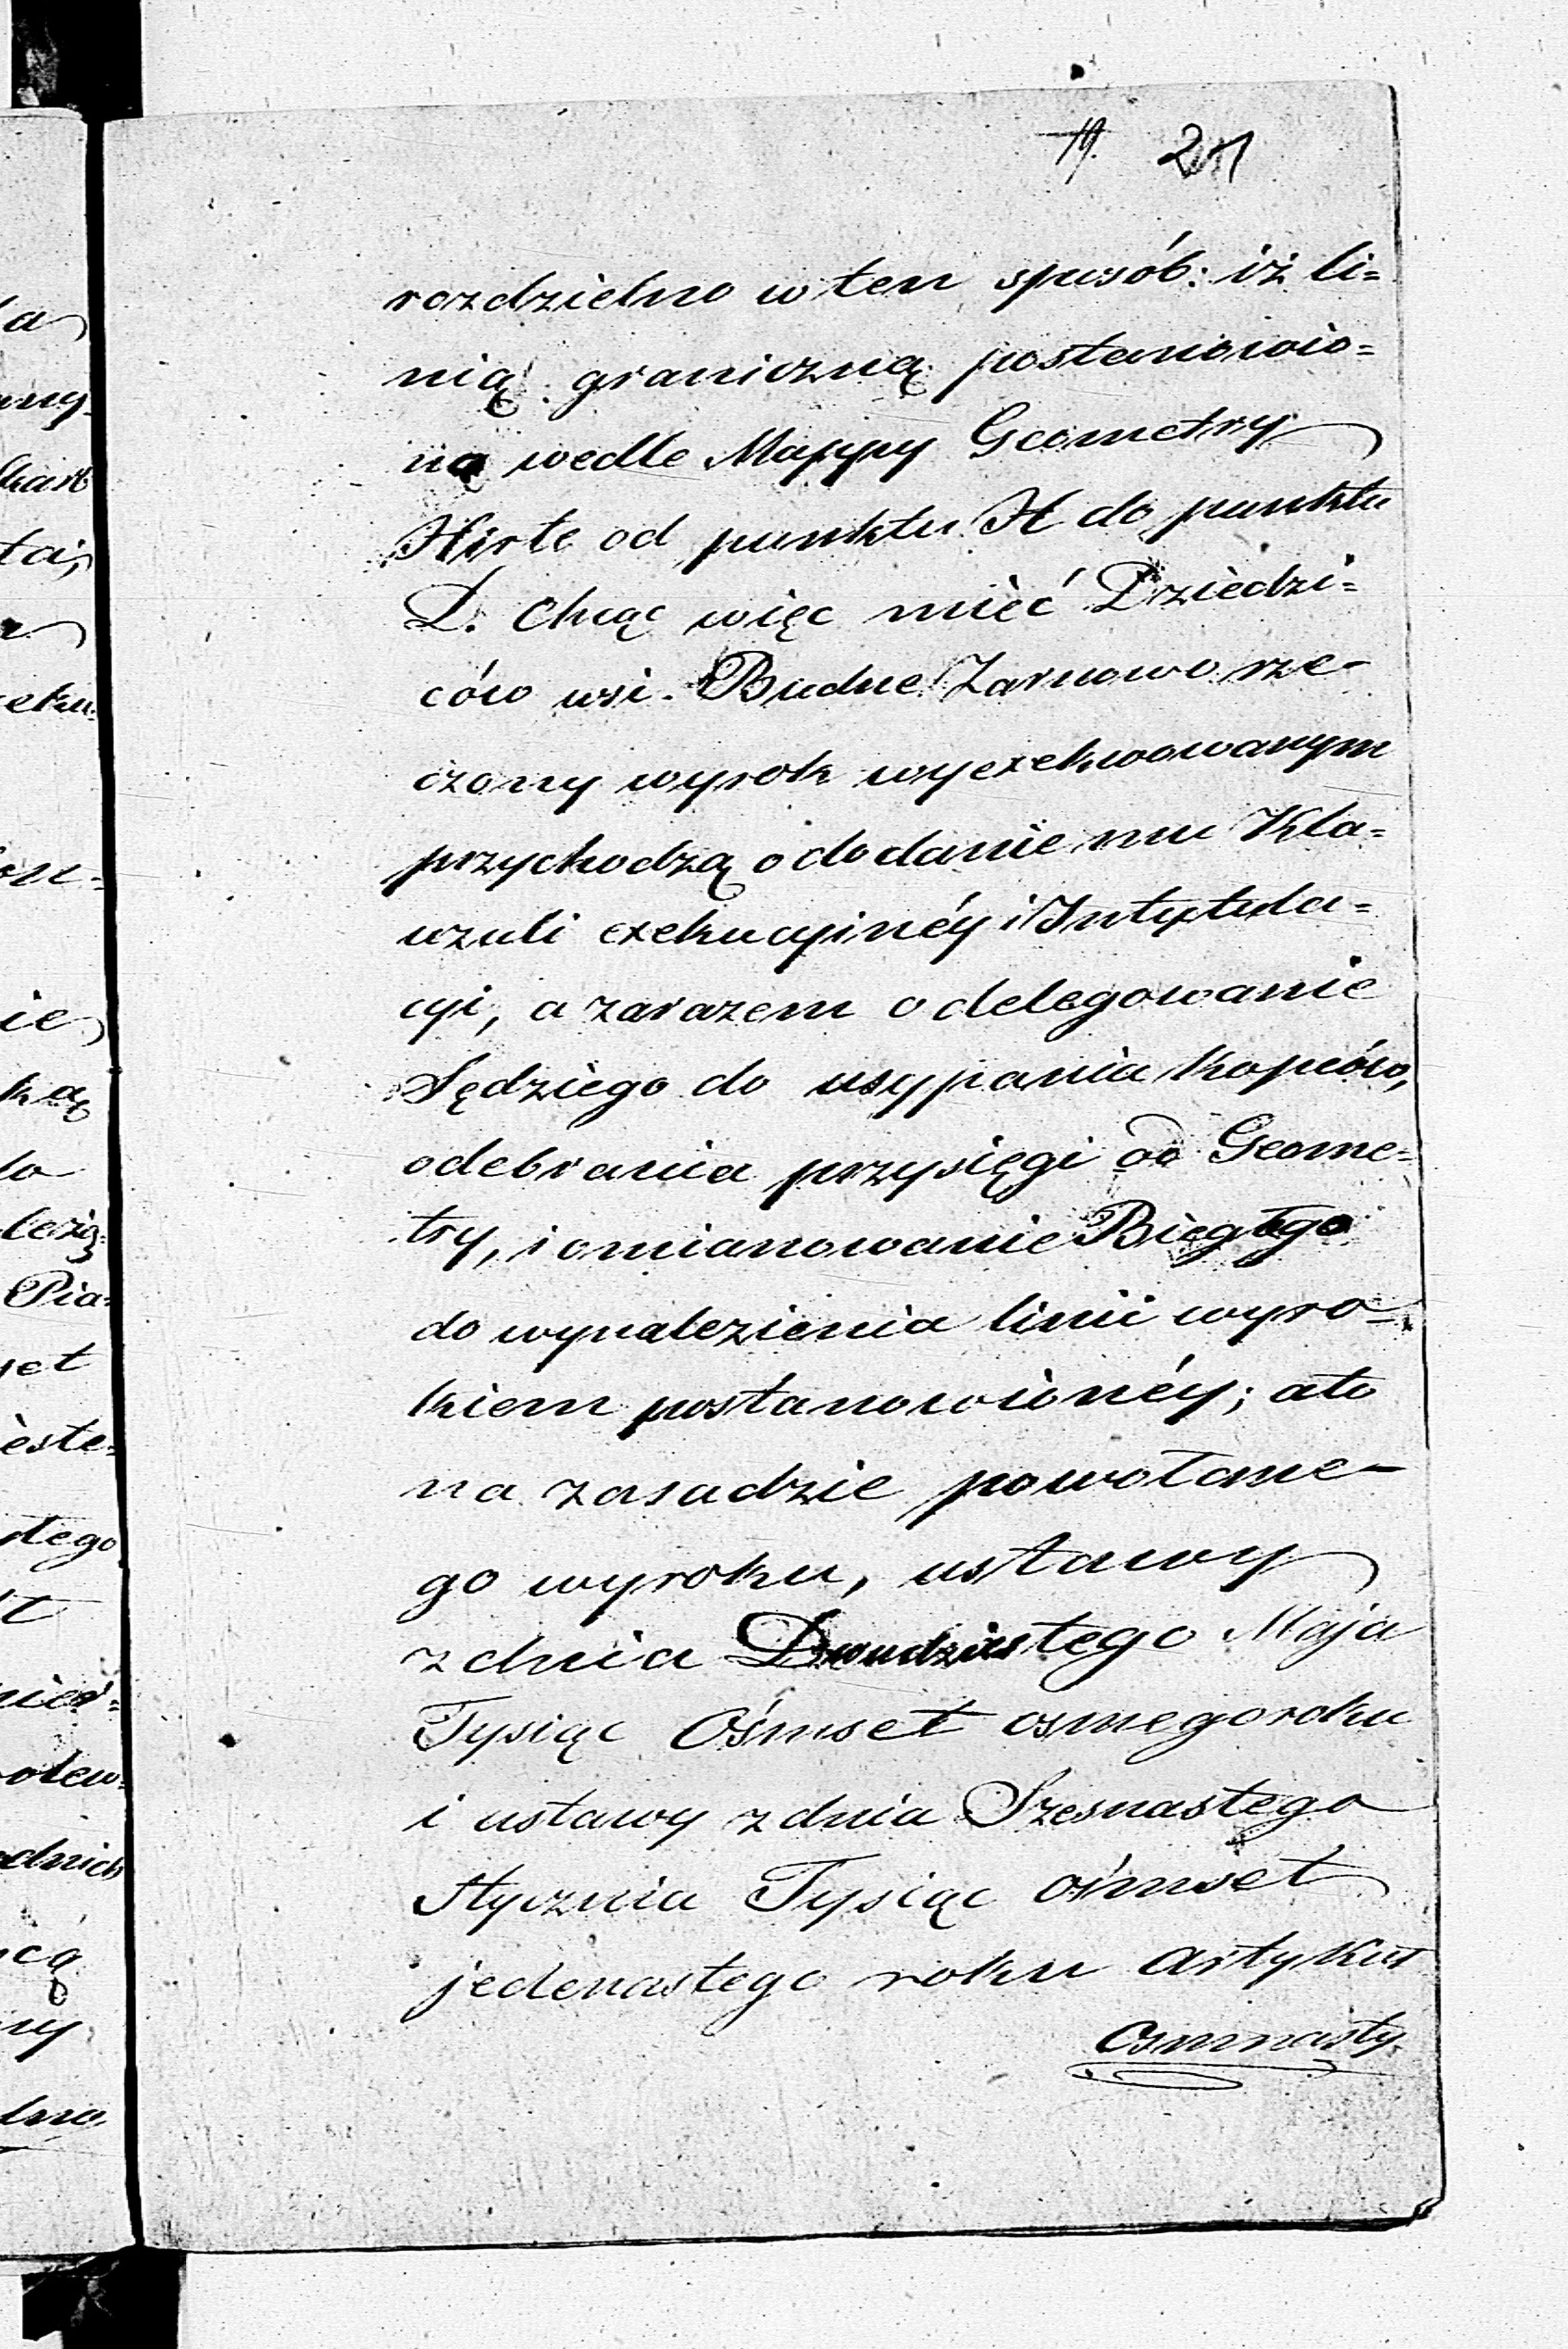 19. 21
rozdzielno w ten sposób: iż li=
nią graniczną postanowio=
ną wedle Mappy Geometry
Hirte od punktu H do punktu
D. Chcąc więc mieć Dziedzi=
ców wsi Budne Żarnowo rze-
czony wyrok wyexekwowanym
przychodzą o dodanie mu Kla=
uzuli exekucyinéy i Intytula=
cyi, a zarazem o delegowanie
Sędziego do usypania kopców,
odebrania przysięgi od Geome=
try, i omianowanie Biegłego
do wynalezienia linii wyro-
kiem postanowionéy; a to
na zasadzie powołane-
go wyroku, ustawy
z dnia Dwudziestego Maja
Tysiąc Ośmset osmego roku
i ustawy z dnia Szesnastego
Stycznia Tysiąc ośmset
jedenastego roku artykuł
Osmnasty.